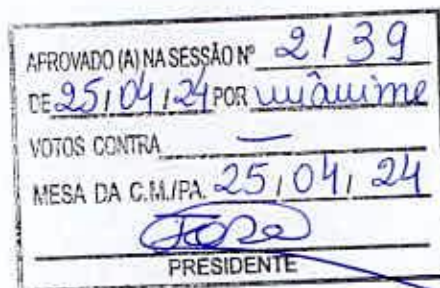 APROVADO (A) NA SESSÃO Nº 2139
DE 25/04/24 POR unânime
VOTOS CONTRA —
MESA DA C.M./PA. 25/04/24
PRESIDENTE